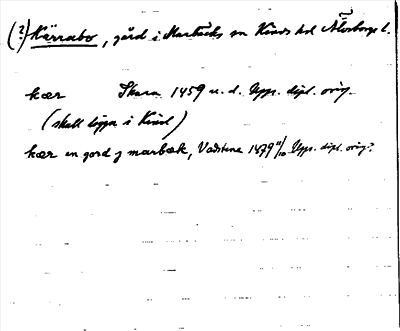 (?) Kärrabo, gård i Marbäcks sn Kinds hd Älvsborgs l.
kær Skara 1459 u. d. Upps. dipl. orig.
(skall ligga i Kind)
kær en gord j marbæk, Vadstena 1479 11/10 Upps. dipl. orig?